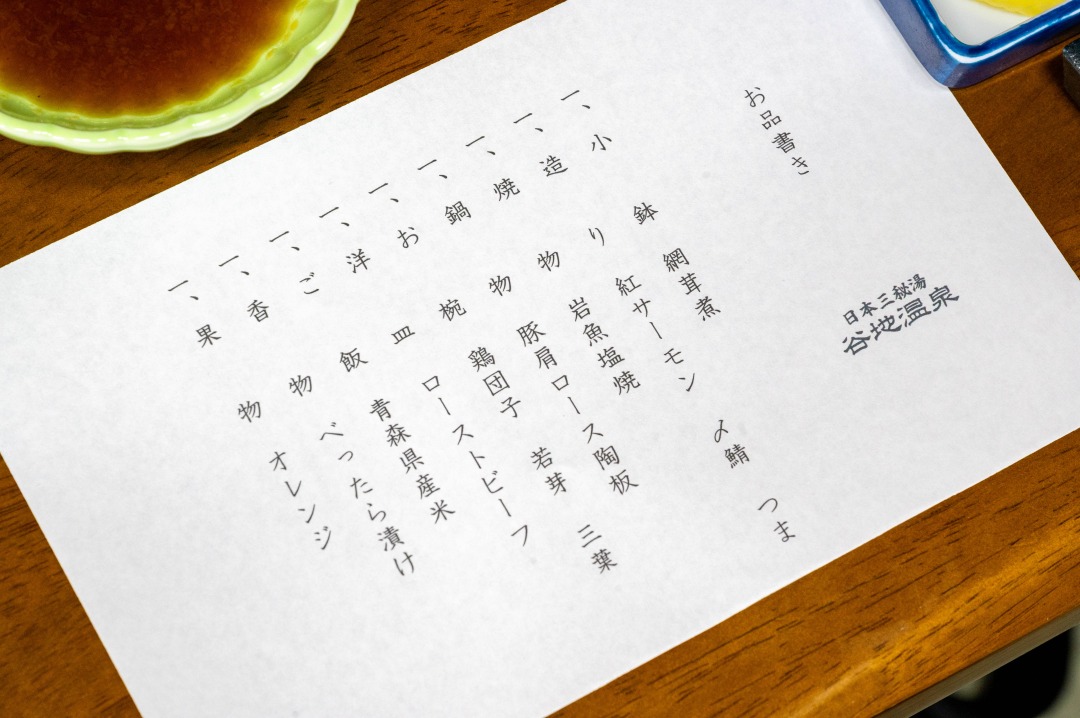 お品書き
一、小鉢 網茸煮
一、造り 紅サーモン 〆鯖 つま
一、焼物 岩魚塩焼
一、鍋物 豚肩ロース陶板
一、お椀 鶏団子 若芽 三葉
一、洋皿 ローストビーフ
一、ご飯 青森県産米
一、香物 べったら漬け
一、果物 オレンジ
日本三秘湯
谷地温泉